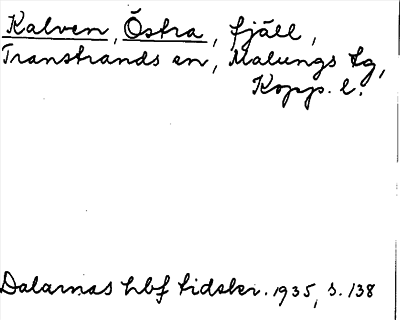 Kalven, Östra, fjäll,
Transtrands sn, Malungs tg,
Kopp. l.
Dalarnas hbf tidskr. 1935, s. 138